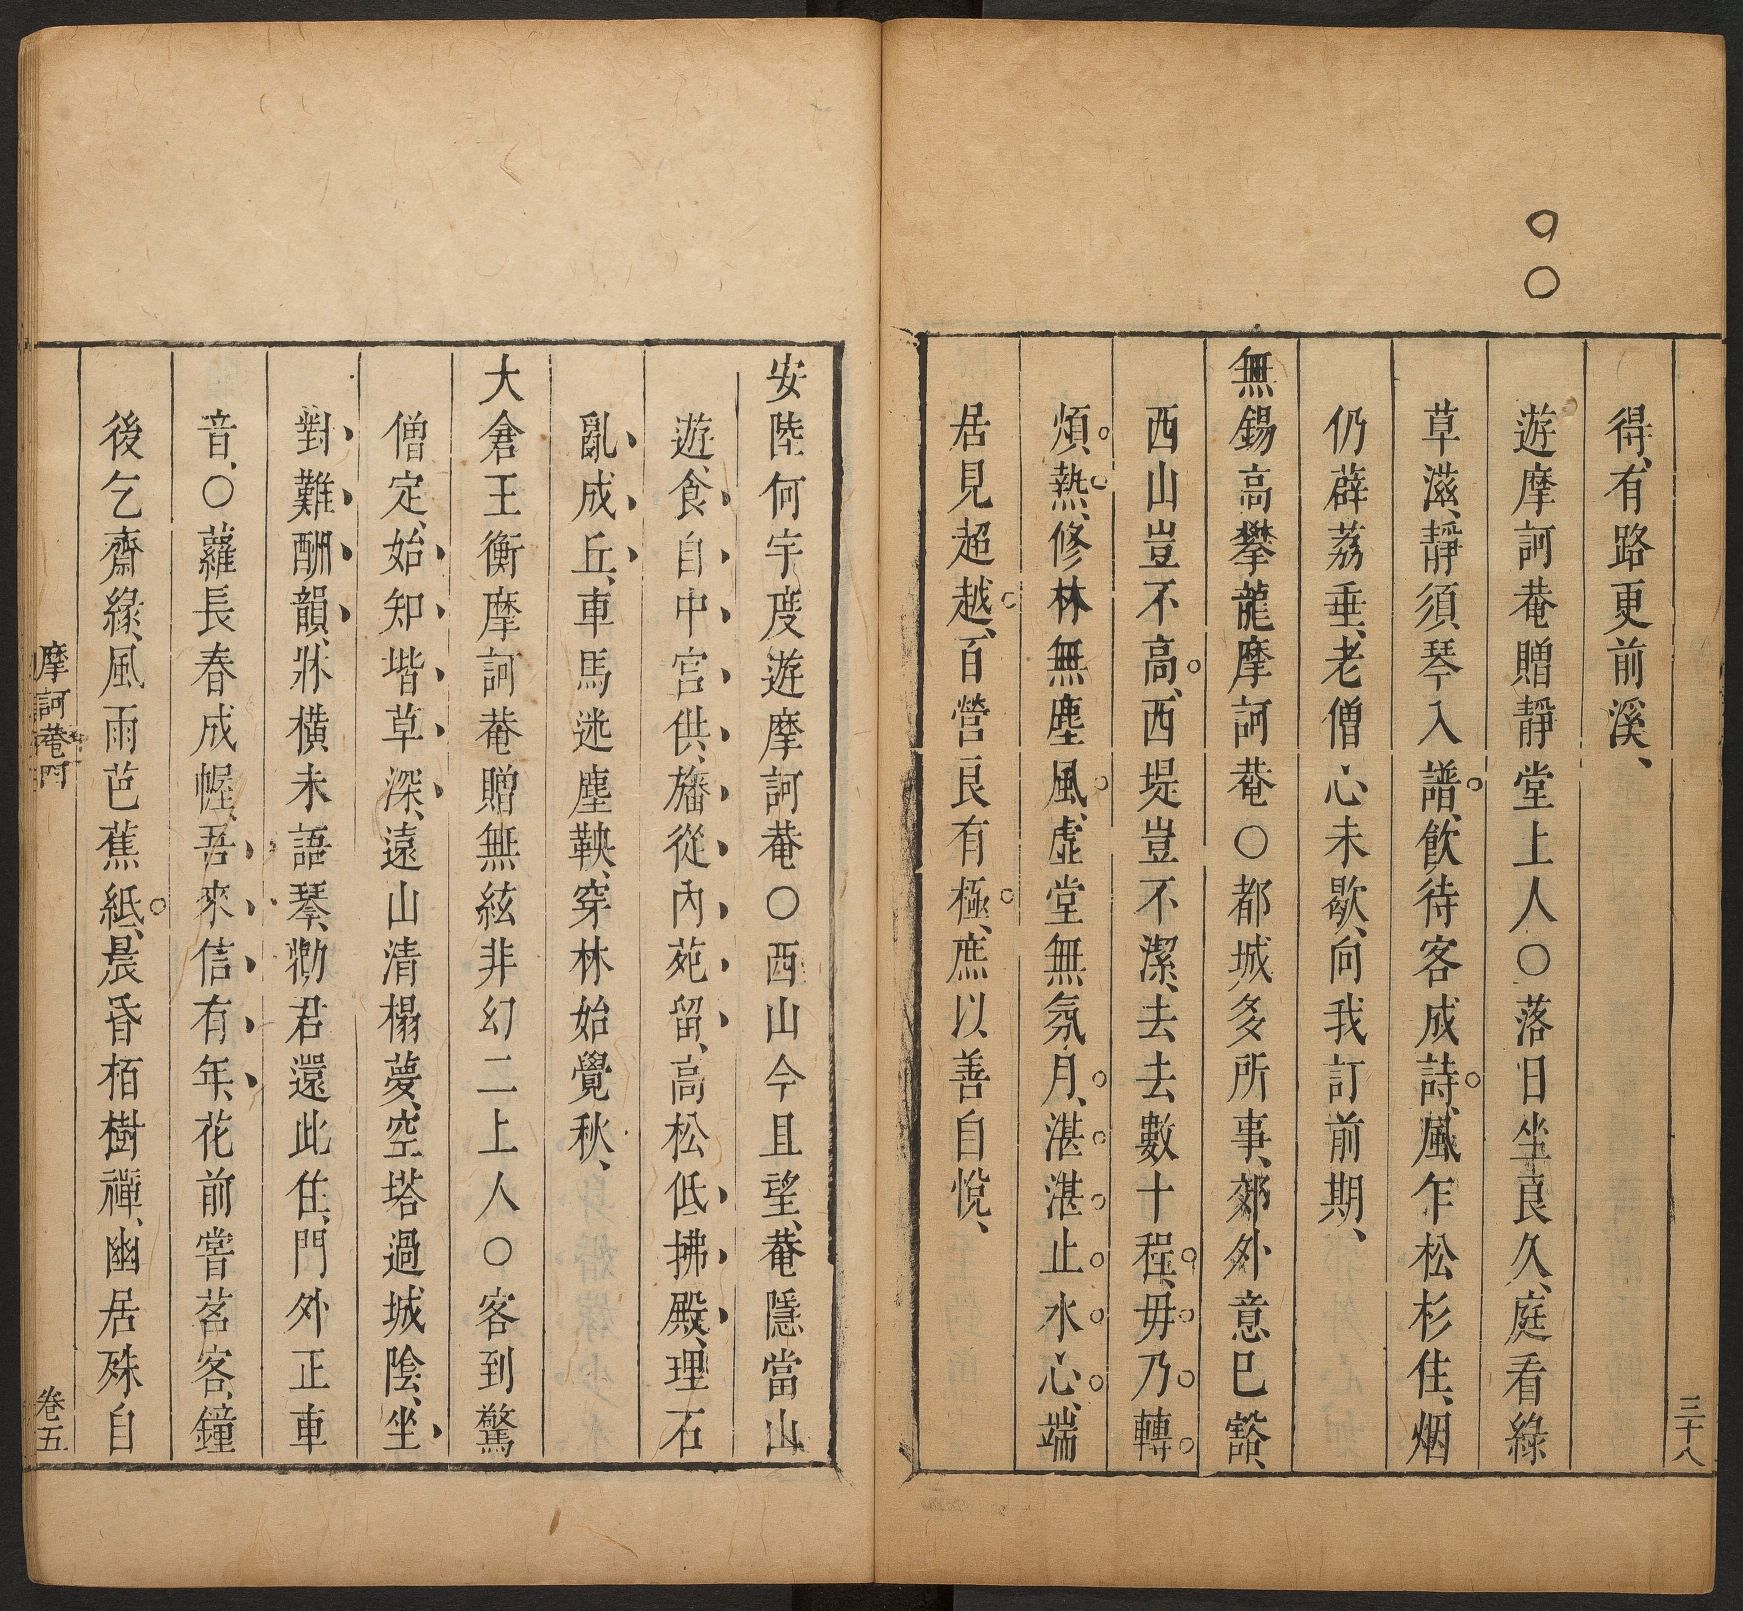 三十八
得、有路更前溪、
遊摩訶菴贈靜堂上人○落日坐良久、庭看綠
草滋、靜須琴入譜、飲待客成詩、風乍松杉住、烟
仍薜荔垂、老僧心未歇、向我訂前期、
無錫高攀龍摩訶菴○都城多所事、郊外意巳豁、
西山豈不高、西堤豈不潔、去去數十程、毋乃轉
煩熱、修林無塵風、虛堂無氛月、湛湛止水心、端
居見超越、百營良有極、庶以善自悅、
安陸何宇度遊摩訶菴○西山今且望、菴隱當山
遊、食自中宮供、旛從內苑留、高松低拂殿、理石
亂成丘、車馬迷塵鞅、穿林始覺秋、
大倉王衡摩訶菴贈無絃非幻二上人○客到驚
僧定、始知堦草深、遠山清榻夢、空塔過城陰、坐
對難酬韻、牀橫未語琴、勸君還此住、門外正車
音、○蘿長春成幄、吾來信有年、花前嘗茗客、鐘
後乞齋緣、風雨芭蕉紙、晨昏栢樹禪、幽居殊自
摩訶菴
卷五